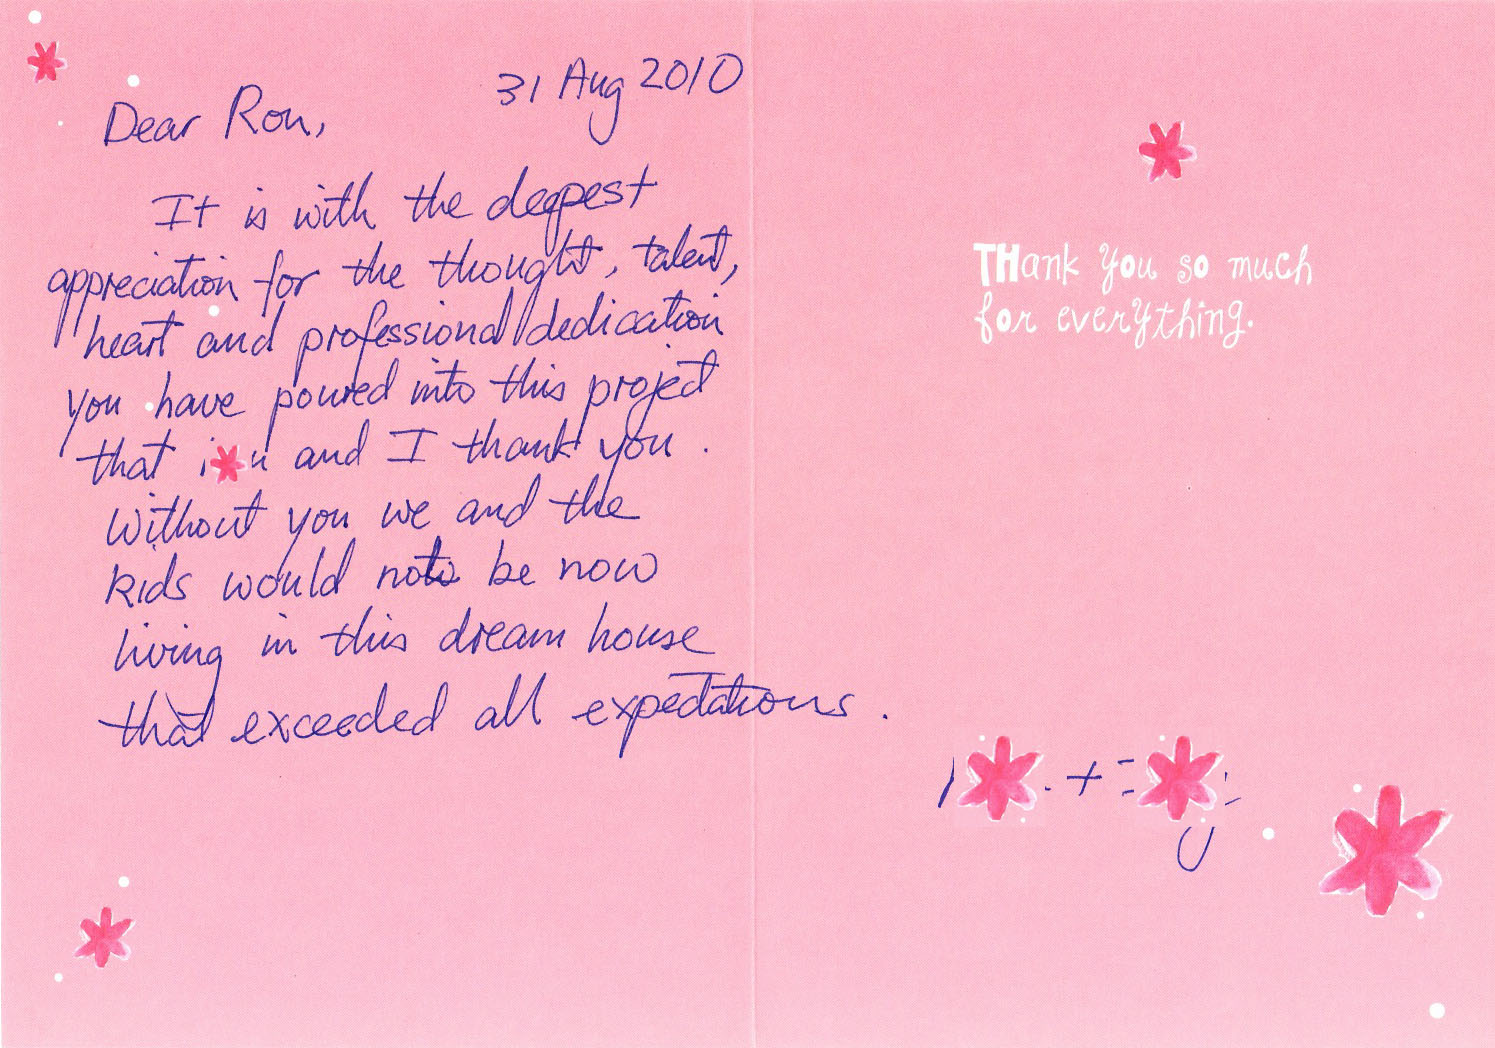 31 Aug 2010
Dear Ron,
It is with the deepest
appreciation for the thought, talent,
heart and professional dedication
you have poured into this project
that and I thank you.
Without you we and the
kids would not be now
living in this dream house
that exceeded all expectations.
THank you so much
for everything.
+